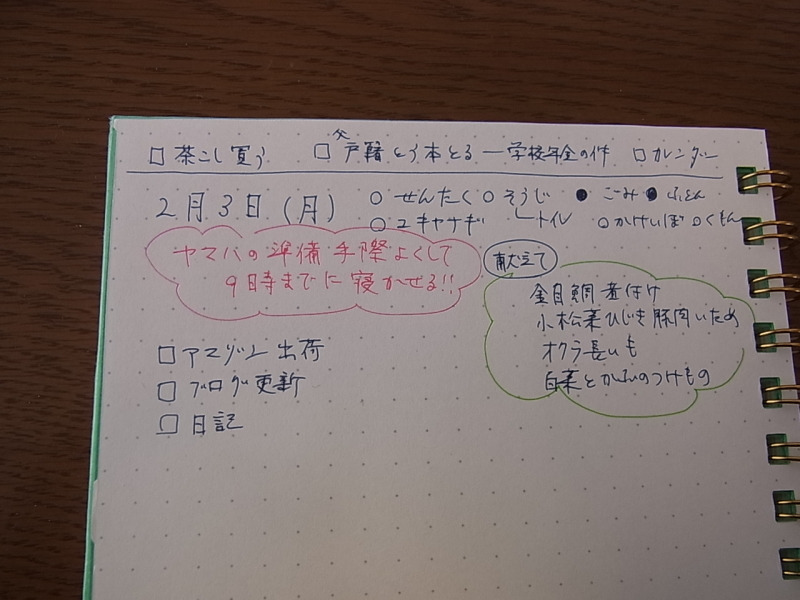 □ 茶こし買う □ 父 戸籍とう本とる ー学校年金の件 □ カレンダー
2月3日(月) ○ せんたく ○ そうじ ● ごみ ● ふとん
○ ユキヤナギ └トイレ ○ かけいぼ ○ くもん
ヤマハの準備 手際よくして
9時までに寝かせる!!
献立て
金目鯛煮付け
小松菜ひじき豚肉いため
オクラ長いも
白菜とかぶのつけもの
□ アマゾン出荷
□ ブログ更新
□ 日記